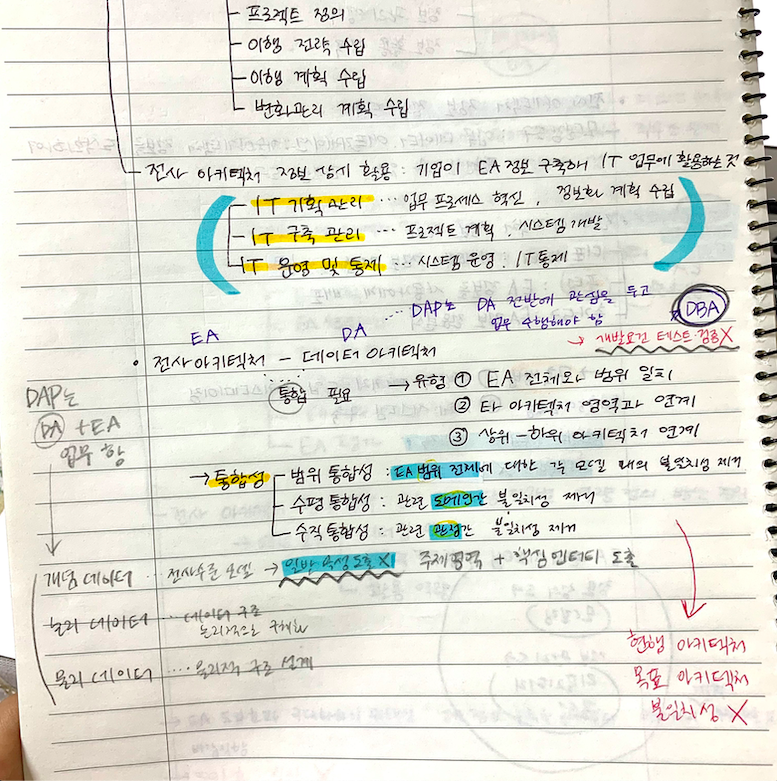 프로젝트 정의
이행 전략 수립
이행 계획 수립
변화관리 계획 수립
전사 아키텍처 정보 상시 활용 : 기업이 EA 정보 구축해 IT 업무에 활용하는 것
IT 기획관리 … 업무 프로세스 혁신, 정보화 계획 수립
IT 구축 관리 … 프로젝트 계획, 시스템 개발
IT 운영 및 통제 … 시스템 운영. IT통제
EA DA … DAP는 DA 전반에 관심을 두고 업무 수행해야 함
DBA
→ 개발요건 테스트·검증 X
• 전사아키텍처 - 데이터 아키텍처
통합 필요 → 유형 ① EA 전체와 범위 일치
② 타 아키텍처 영역과 연계
③ 상위-하위 아키텍처 연계
DAP는
DA + EA
업무 함
→ 통합성 - 범위 통합성 : EA 범위 전체에 대한 각 모델 내의 불일치성 제거
수평 통합성 : 관련 도메인간 불일치성 제거
수직 통합성 : 관련 관점간 불일치성 제거
개념 데이터 … 전사수준 모델 → 일반 속성 도출 X 주제영역 + 핵심엔터티 도출
논리 데이터 … 데이터 구조
논리적으로 구체화
물리 데이터 …. 물리적 구조 설계
현행 아키텍처
목표 아키텍처
불일치성 X